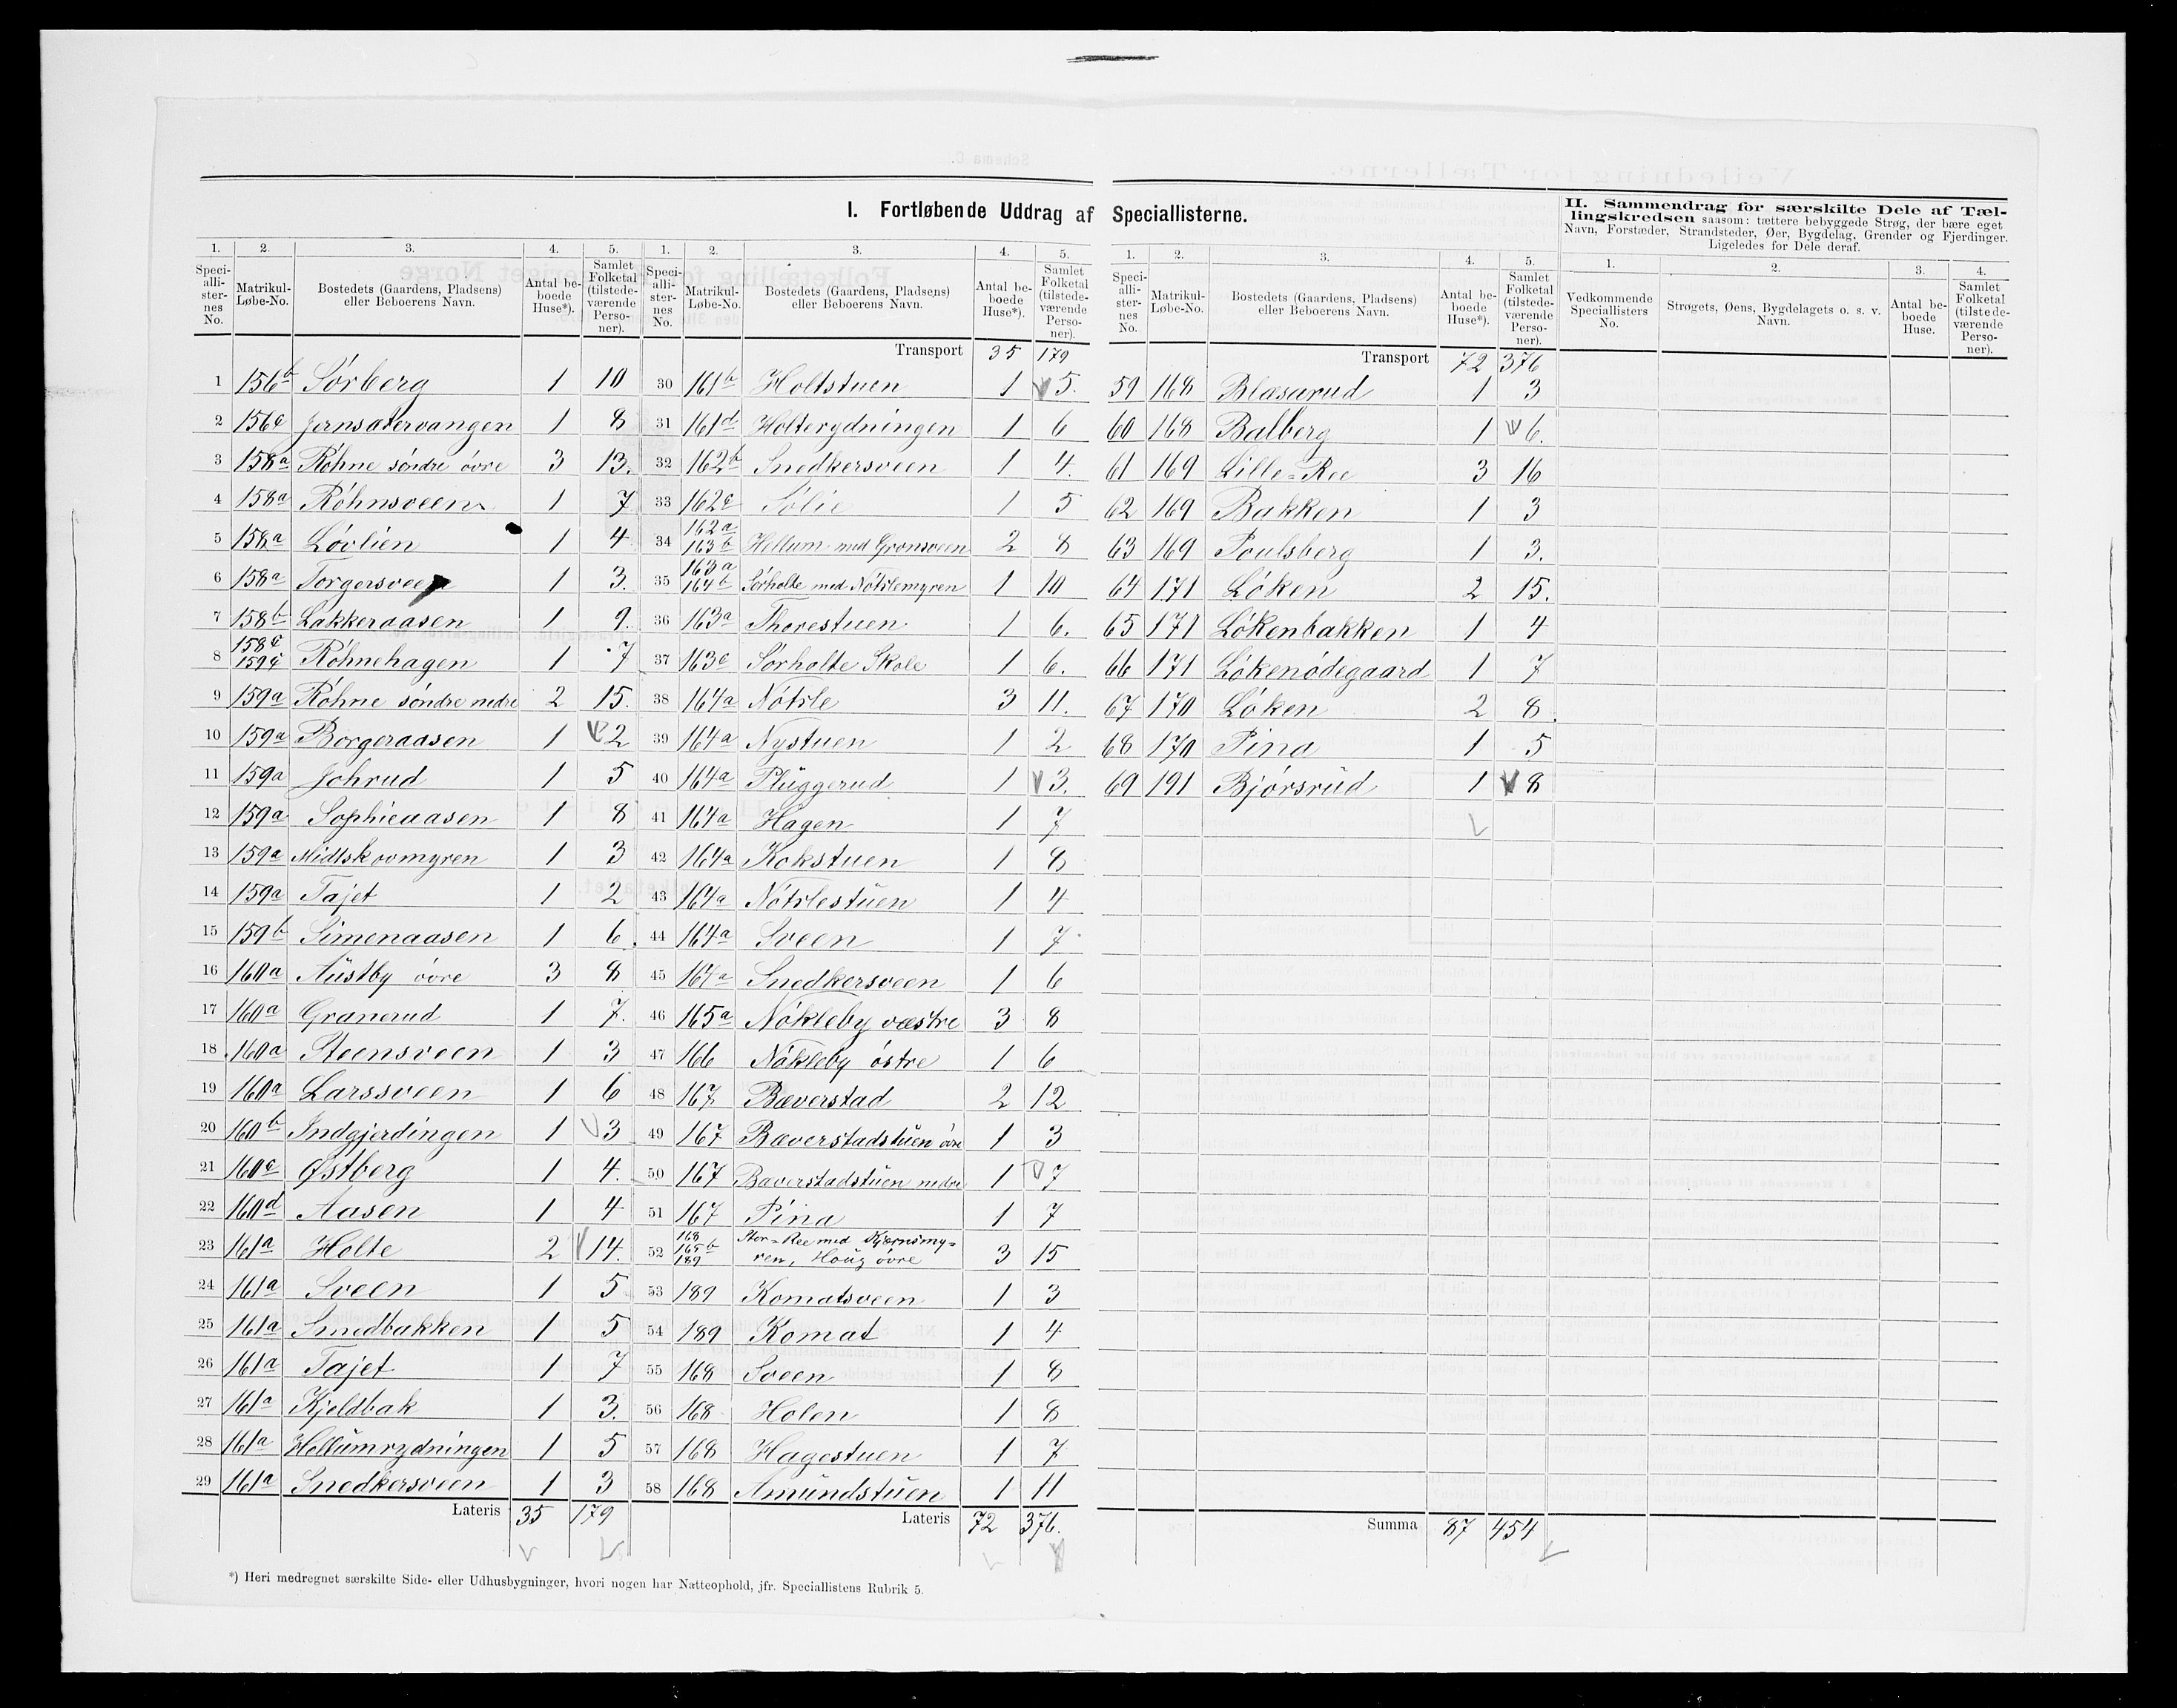 I. Fortløbende Uddrag af Speciallisterne.
II. Sammendrag for særskilte Dele af Tæl-
lingskredsen saasom: tættere bebyggede Strøg, der bære eget
Navn, Forstæder, Strandsteder, Øer, Bygdelag, Grender og Fjerdinger.
Ligeledes for Dele deraf.
1. 2. 3. 4. 5.
Speci-alli-ster-nes No. Matrikul-Løbe-No. Bostedets (Gaardens, Pladsens) eller Beboerens Navn. Antal be-boede Huse*). Samlet Folketal (tilstede-værende Perso-ner).
1 156b Sörberg 1 10
2 156c Jernsætervangen 1 8
3 158a Röhne söndre övre 3 13.
4 158a Röhnsveen 1 7
5 158a Lövlien 1 4
6 158a Torgersveen 1 3.
7 158b Lakkeraasen 1 9.
8 158c 159c Röhnehagen 1 7
9 159a Röhne söndre nedre 2 15.
10 159a Borgeraasen 1 2
11 159a Johrud 1 5
12 159a Sophieaasen 1 8
13 159a Midtskovmyren 1 3
14 159a Tajet 1 2
15 159b Simenaasen 1 6.
16 160a Austby övre 3 8
17 160a Granerud 1 7.
18 160a Steensveen 1 3
19 160a Larssveen 1 6
20 160b Indgjerdingen 1 3
21 160c Østberg 1 4.
22 160d Aasen 1 4
23 161a Holte 2 14.
24 161a Sveen 1 5
25 161a Smedbakken 1 5
26 161a Tajet 1 7
27 161a Kjeldbak 1 3.
28 161a Hellumrydningen 1 5
29 161a Snedkersveen 1 3
Lateris 35 179
1. 2. 3. 4. 5.
Speci-alli-ster-nes No. Matrikul-Løbe-No. Bostedets (Gaardens, Pladsens) eller Beboerens Navn. Antal be-boede Huse*). Samlet Folketal (tilstede-værende Perso-ner).
Transport 35 179
30 161b Holtstuen 1 5.
31 161d Holterydningen 1 6
32 162b Snedkersveen 1 4.
33 162c Sölie 1 5
34 162a 163b Hellum med Gronsveen 2 8
35 163a 164b Sörholte med Nötslemyren 1 10
36 163a Thorestuen 1 6.
37 163c Sörholte Skole 1 6.
38 164a Nötsle 3 11.
39 164a Nystuen 1 2
40 164a Pluggerud 1 3.
41 164a Hagen 1 7
42 164a Kokstuen 1 8
43 164a Nötslestuen 1 4
44 164a Sveen 1 7
45 164a Snedkersveen 1 6
46 165a Nökleby væstre 3 8
47 166 Nökleby östre 1 6
48 167 Bæverstad 2 12
49 167 Bæverstadstuen övre 1 3
50 167 Bæverstadstuen nedre 1 7
51 167 Pina 1 7
52 168 165b 189 Stor=Ree med Kjernsmy=
ren, Houg övre 3 15
53 189 Komatsveen 1 3
54 189 Komat 1 4
55 168 Sveen 1 8
56 168 Holen 1 8
57 168 Hagestuen 1 7
58 168 Amundstuen 1 11
Lateris 72 376.
1. 2. 3. 4. 5.
Speci-alli-ster-nes No. Matrikul-Løbe-No. Bostedets (Gaardens, Pladsens) eller Beboerens Navn. Antal be-boede Huse*). Samlet Folketal (tilstede-værende Perso-ner).
Transport 72 376
59 168 Blæsarud 1 3
60 168 Balberg 1 6.
61 169 Lille=Ree 3 16
62 169 Bakken 1 3
63 169 Poulsberg 1 3.
64 171 Löken 2 15.
65 171 Lökenbakken 1 4
66 171 Lökenödegaard 1 7
67 170 Löken 2 8.
68 170 Pina 1 5
69 191 Bjørsrud 1 8
Summa 87 454
1. 2. 3. 4.
Vedkommende Speciallisters No. Strøgets, Øens, Bygdelagets o. s. v. Navn. Antal be-boede Huse. Samlet Folketal (tilstede-værende Perso-ner).
*) Heri medregnet særskilte Side- eller Udhusbygninger, hvori nogen har Natteophold, jfr. Speciallistens Rubrik 5.